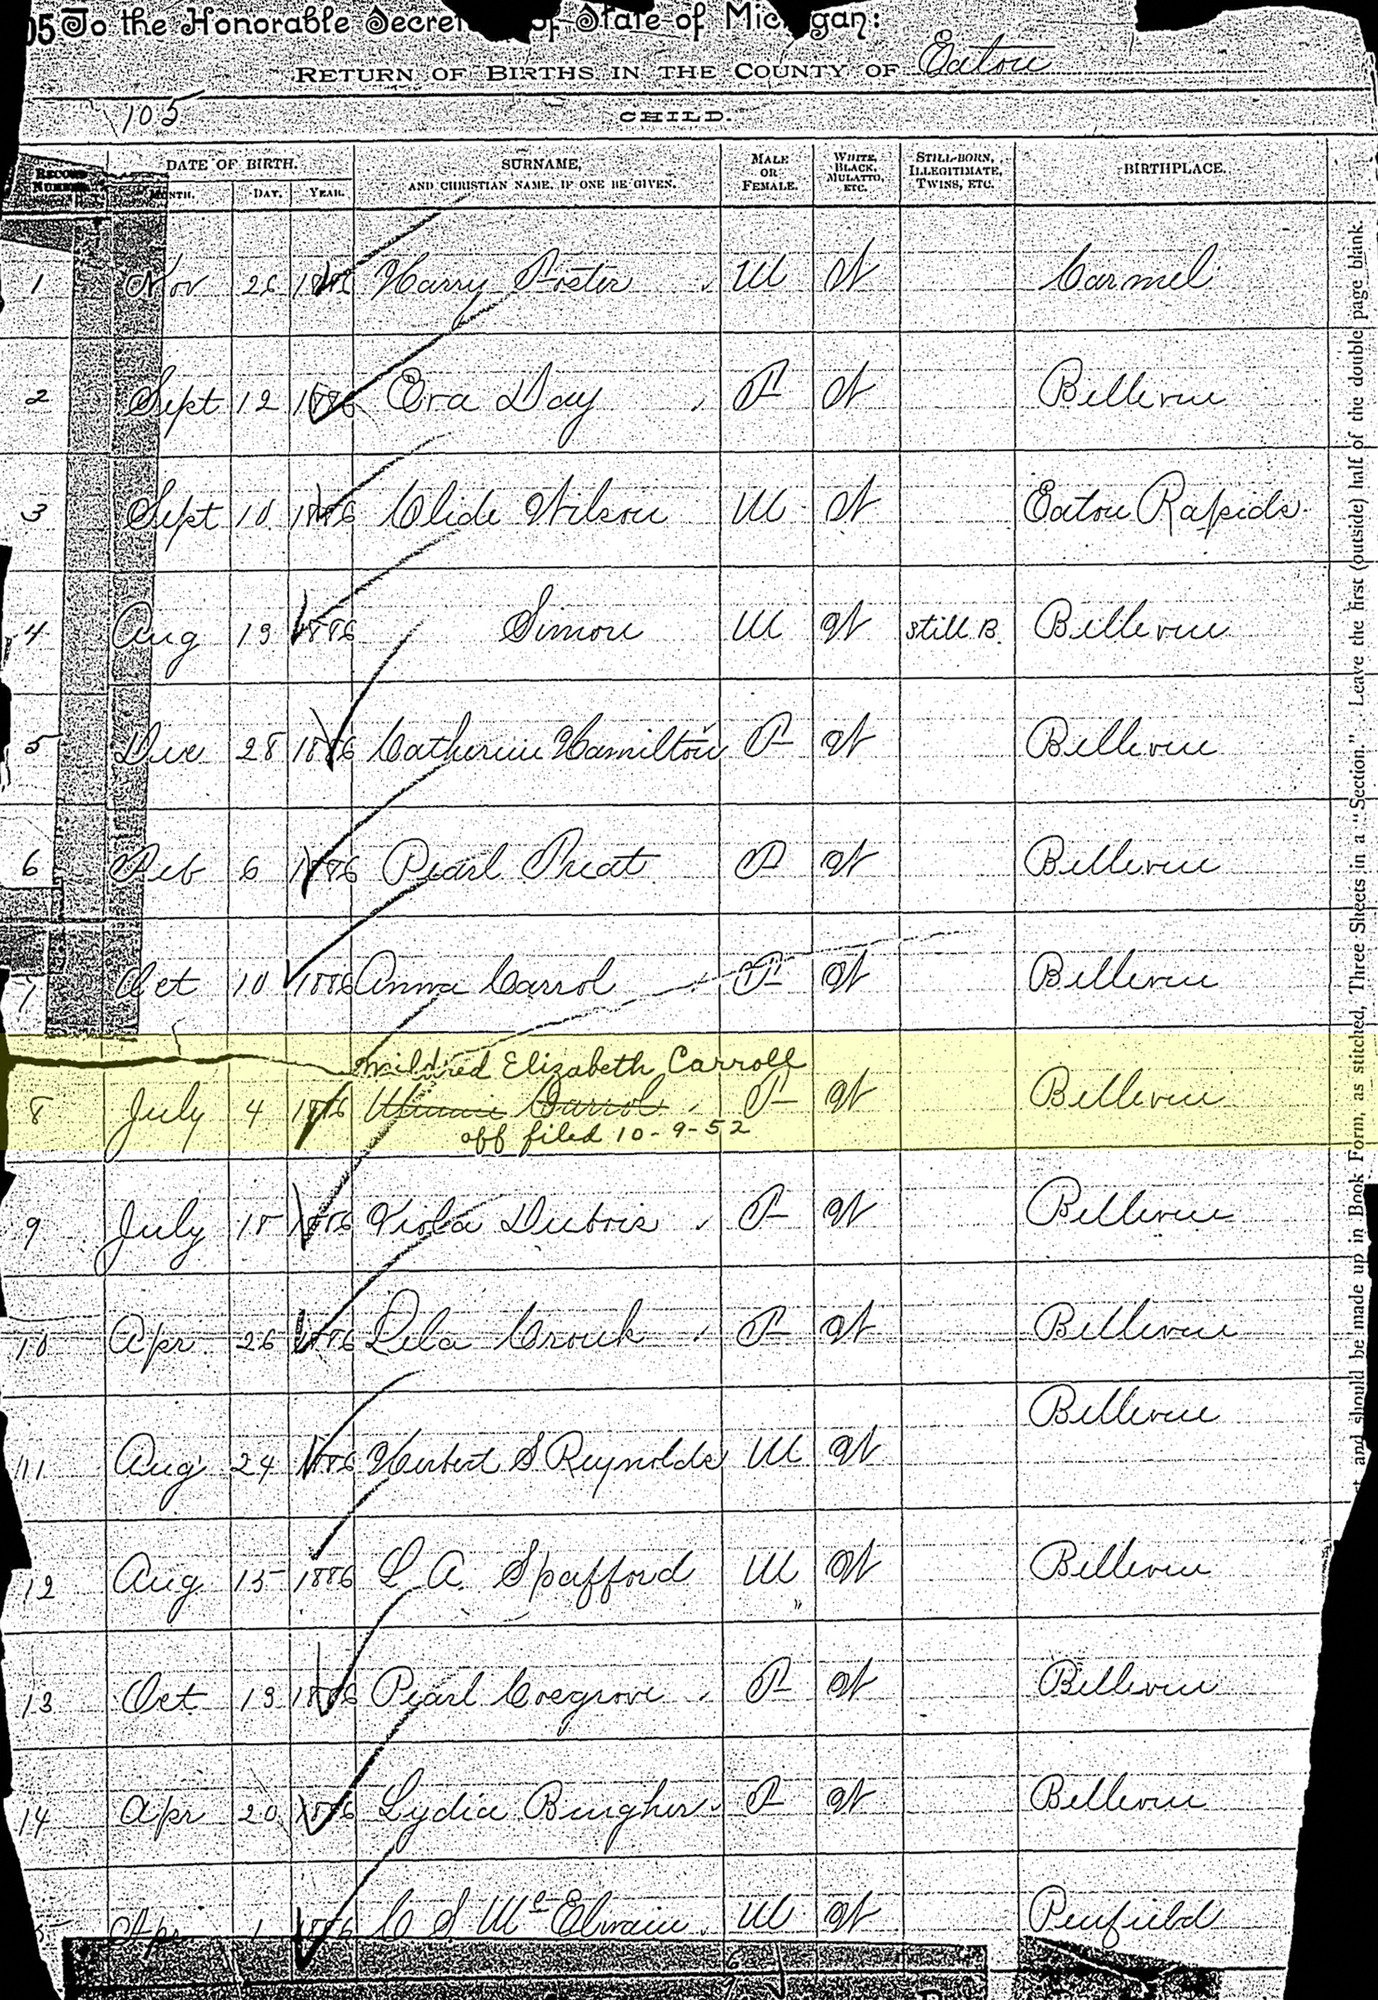 105 To the Honorable Secretary of State of Michigan:
RETURN OF BIRTHS IN THE COUNTY OF Eaton
105 CHILD.
RECORD NUMBER. DATE OF BIRTH. MONTH. DAY. YEAR. SURNAME, AND CHRISTIAN NAME, IF ONE BE GIVEN. MALE OR FEMALE. WHITE, BLACK, MULATTO, ETC. STILL-BORN, ILLEGITIMATE, TWINS, ETC. BIRTHPLACE.
1 Nov 26 1886 Harry Foster M W Carmel
2 Sept 12 1886 Eva Day F W Bellevue
3 Sept 10 1886 Clide Wilson M W Eaton Rapids
4 Aug 19 1886 Simon M W Still B. Bellevue
5 Dec 28 1886 Catherine Hamilton F W Bellevue
6 Feb 6 1886 Pearl Treat F W Bellevue
7 Oct 10 1886 Anna Carrol F W Bellevue
Mildred Elizabeth Carroll
8 July 4 1886 Minnie Carrol F W Bellevue
aff filed 10-9-52
9 July 18 1886 Viola Dubois F W Bellevue
10 Apr 26 1886 Lela Crouk F W Bellevue
11 Aug 24 1886 Herbert S Reynolds M W Bellevue
12 Aug 15 1886 L A. Spafford M W Bellevue
"
13 Oct 19 1886 Pearl Cosgrove F W Bellevue
14 Apr 20 1886 Lydia Burgher F W Bellevue
Apr 1 1886 C S McElwain M W Penfield
and should be made up in Book Form, as stitched, Three Sheets in a "Section." Leave the first (outside) half of the double page blank.